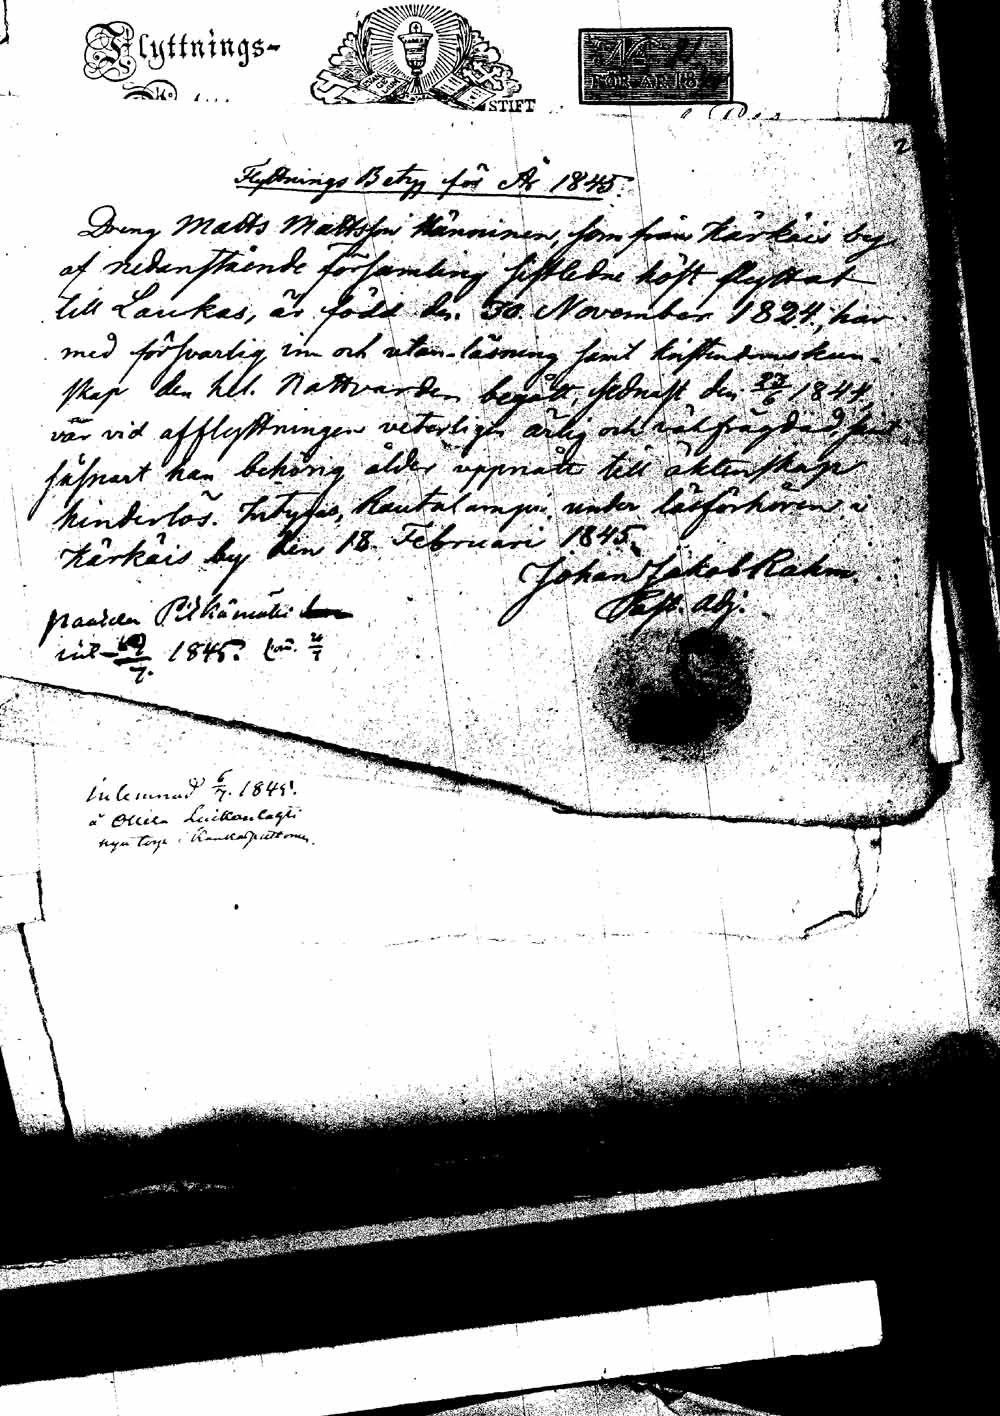 Flyttnings-
STIFT
N:
FÖR ÅR 18
2
Flyttnings Betyg för År 1845.
Dreng Matts Mattsson Hänninen, som från Kärkäis by
af nedanstående församling sistledne höst flyttat
till Laukas, är född den 30 November 1824, har
med försvarlig inn och utan-läsning samt kristendomskun-
skap den hel. Nattvarden begått, sednast den 23/6 1844,
var vid afflyttningen veterligen ärlig och välfrägdad, samt
såsnart han behörig ålder uppnått till äktenskap
hinderlös. Intygas, Rautalampi, under läsförhören i
Kärkäis by den 18 Februari 1845.
Johan Jakob Rahm.
Past. adj.
Pitkämäki
1845.
inlemnad 6/7. 1845.